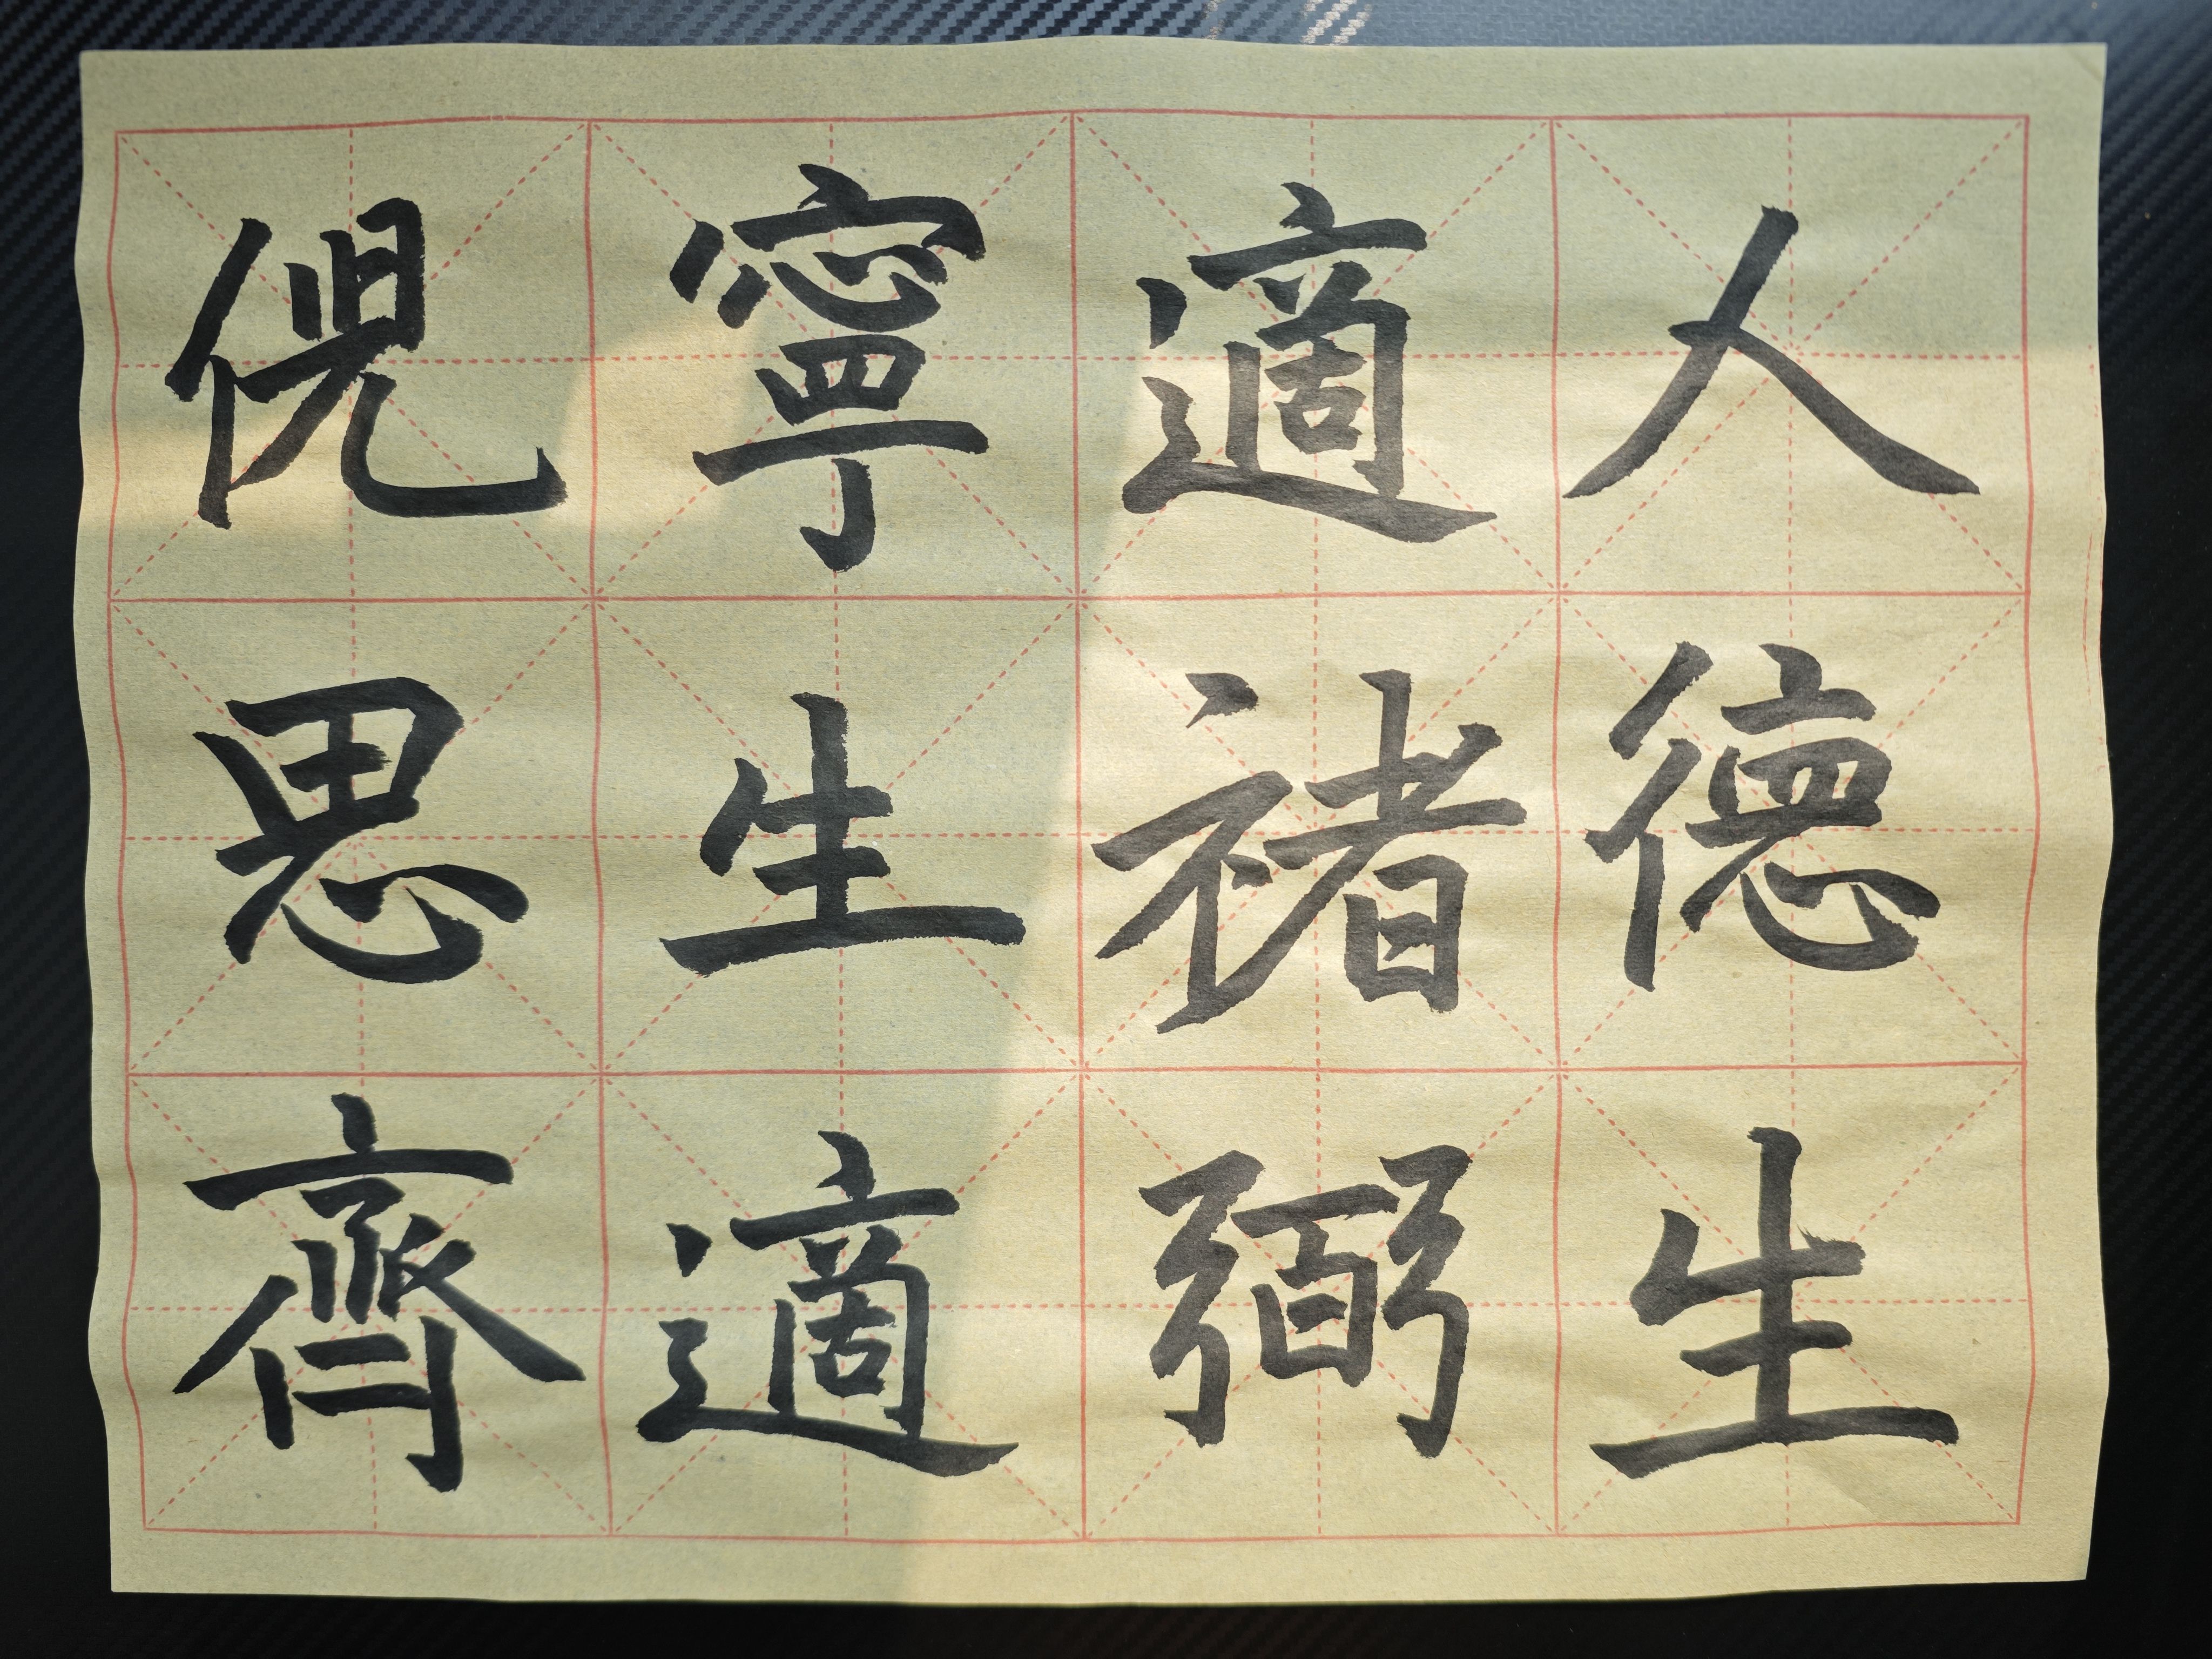 人德生
適褚弼
寧生適
倪思齊